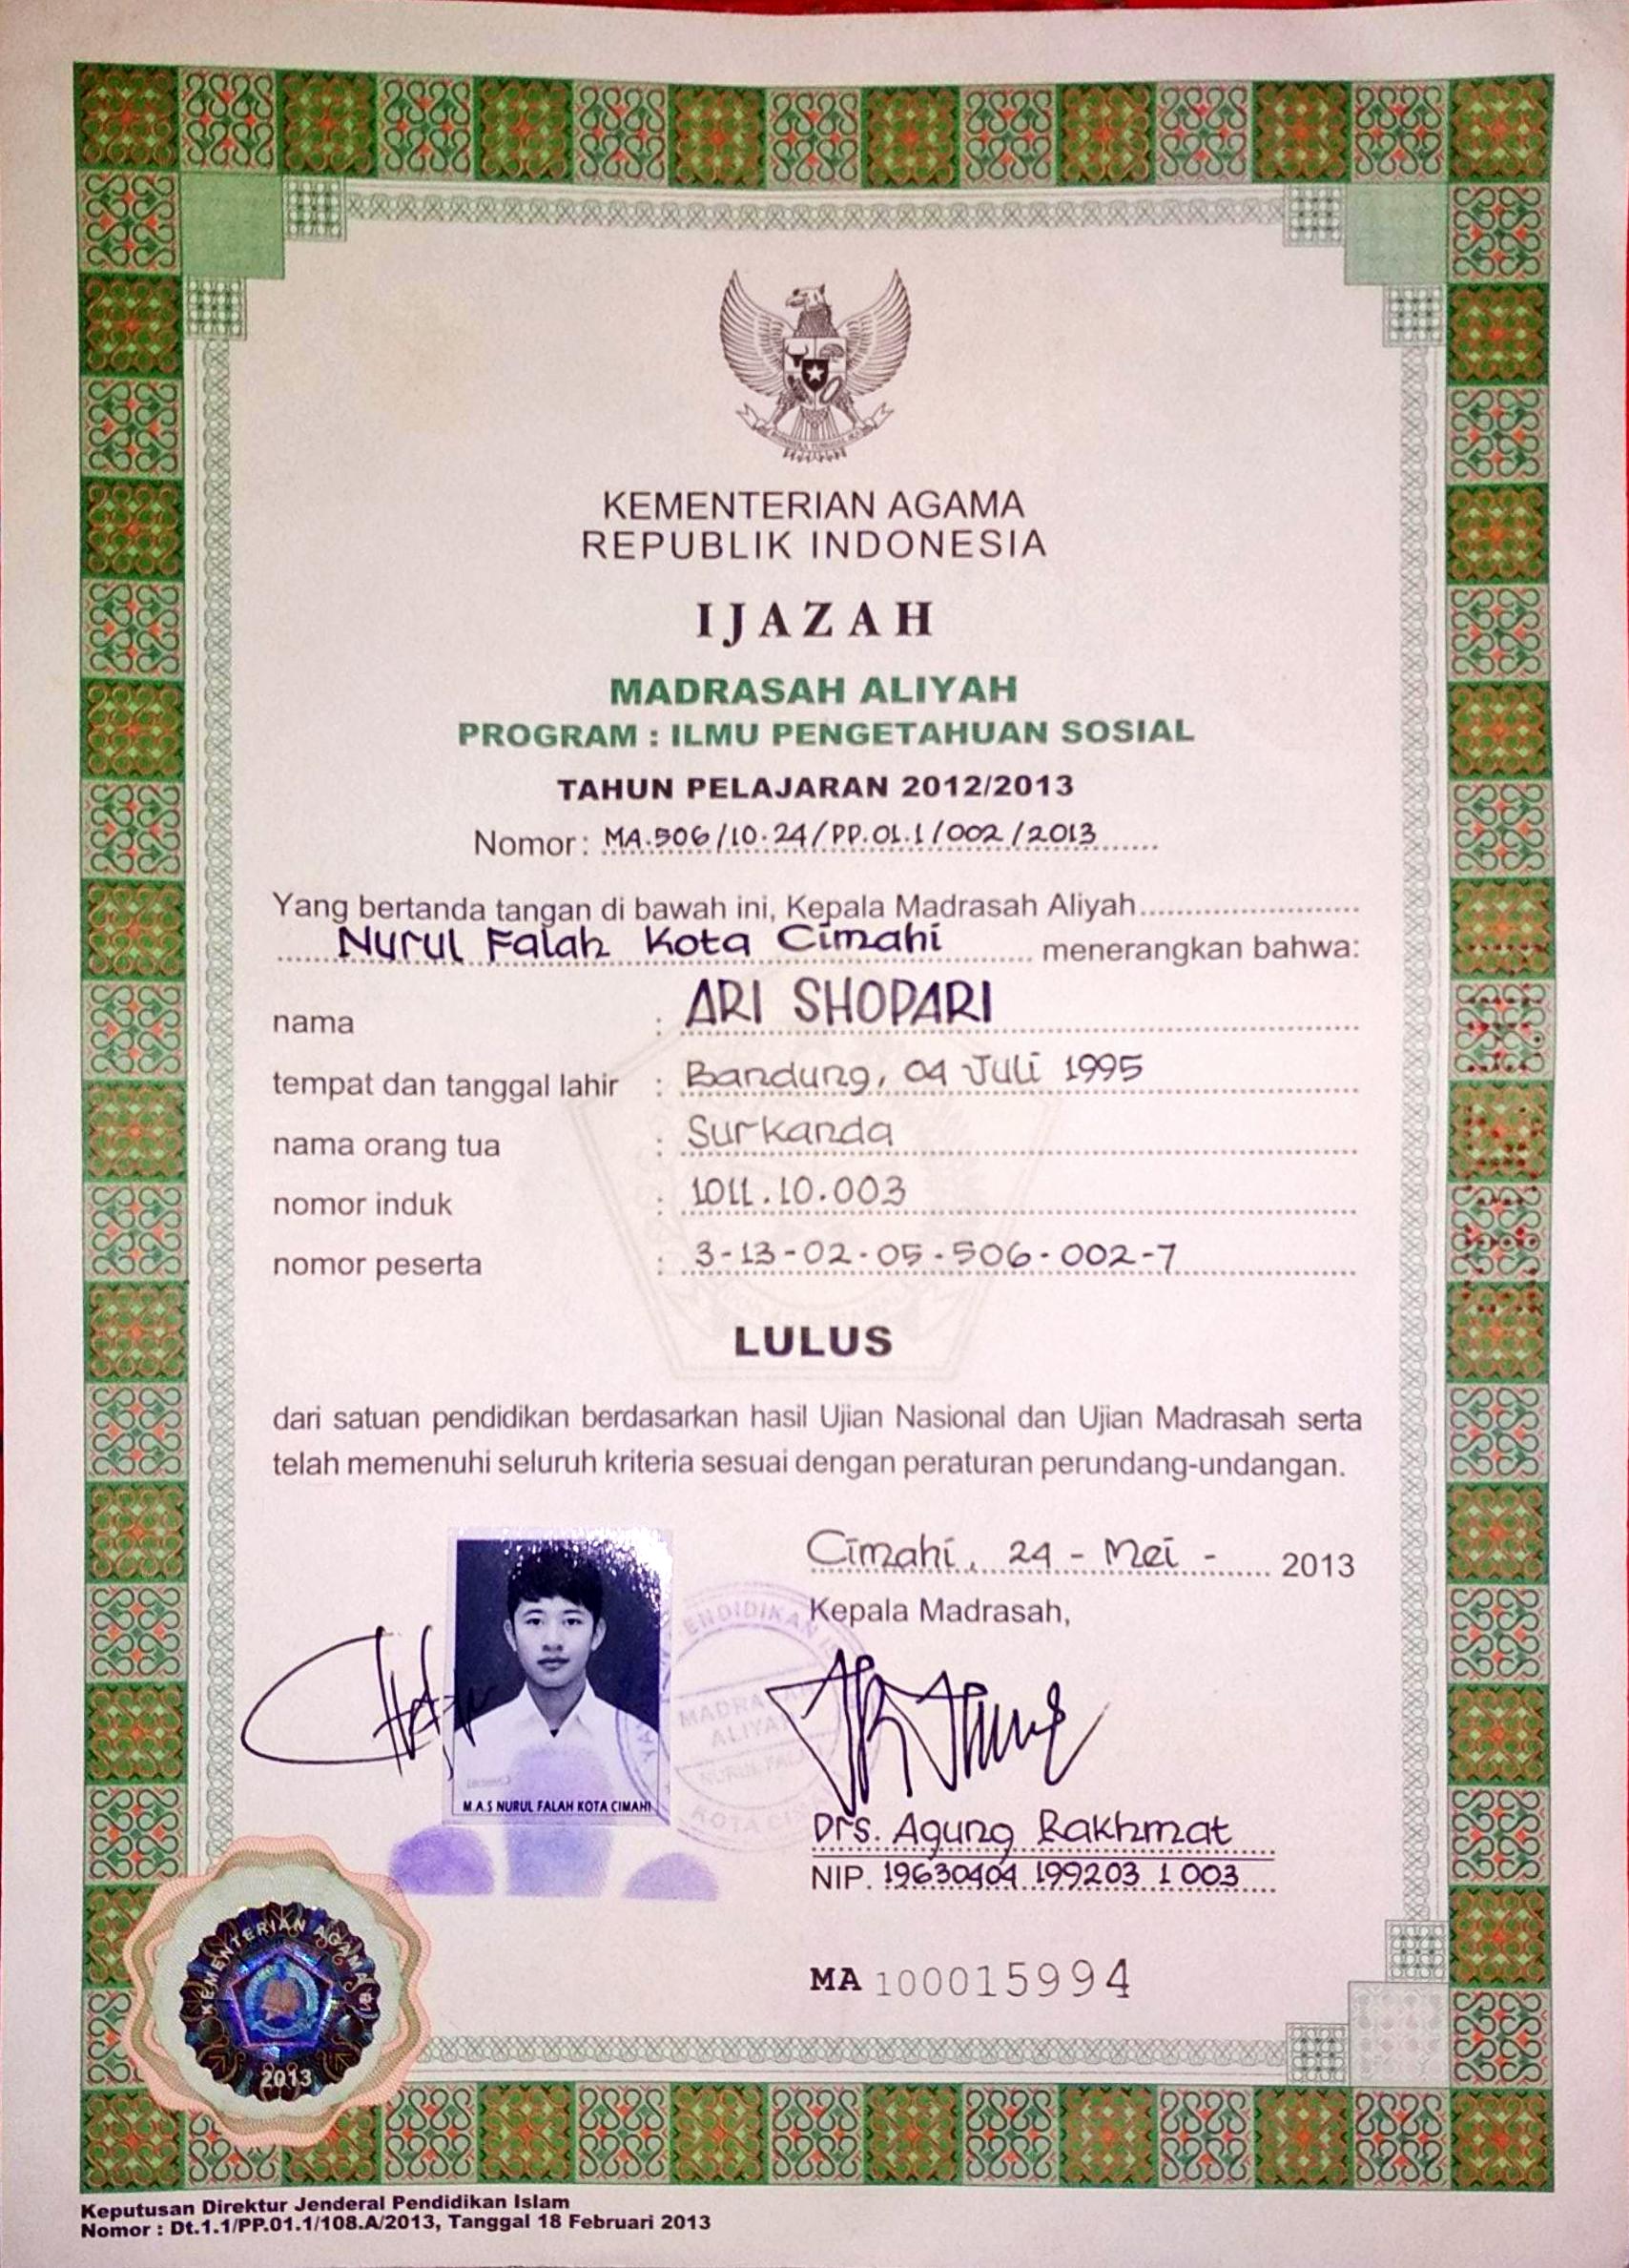 KEMENTERIAN AGAMA
REPUBLIK INDONESIA
IJAZAH
MADRASAH ALIYAH
PROGRAM : ILMU PENGETAHUAN SOSIAL
TAHUN PELAJARAN 2012/2013
Nomor : MA.506/10.24/PP.01.1/002/2013
Yang bertanda tangan di bawah ini, Kepala Madrasah Aliyah
Nurul Falah Kota Cimahi menerangkan bahwa:
nama : ARI SHOPARI
tempat dan tanggal lahir : Bandung, 04 Juli 1995
nama orang tua : Surkanda
nomor induk : 1011.10.003
nomor peserta : 3-13-02-05-506-002-7
LULUS
dari satuan pendidikan berdasarkan hasil Ujian Nasional dan Ujian Madrasah serta
telah memenuhi seluruh kriteria sesuai dengan peraturan perundang-undangan.
Cimahi, 24 - Mei - 2013
Kepala Madrasah,
MADRASAH
ALIYAH
NURUL FALAH
KOTA
M.A.S NURUL FALAH KOTA CIMAHI
Drs. Agung Rakhmat
NIP. 19630404 199203 1 003
MA 100015994
KEMENTERIAN AGAMA RI
2013
Keputusan Direktur Jenderal Pendidikan Islam
Nomor : Dt.1.1/PP.01.1/108.A/2013, Tanggal 18 Februari 2013